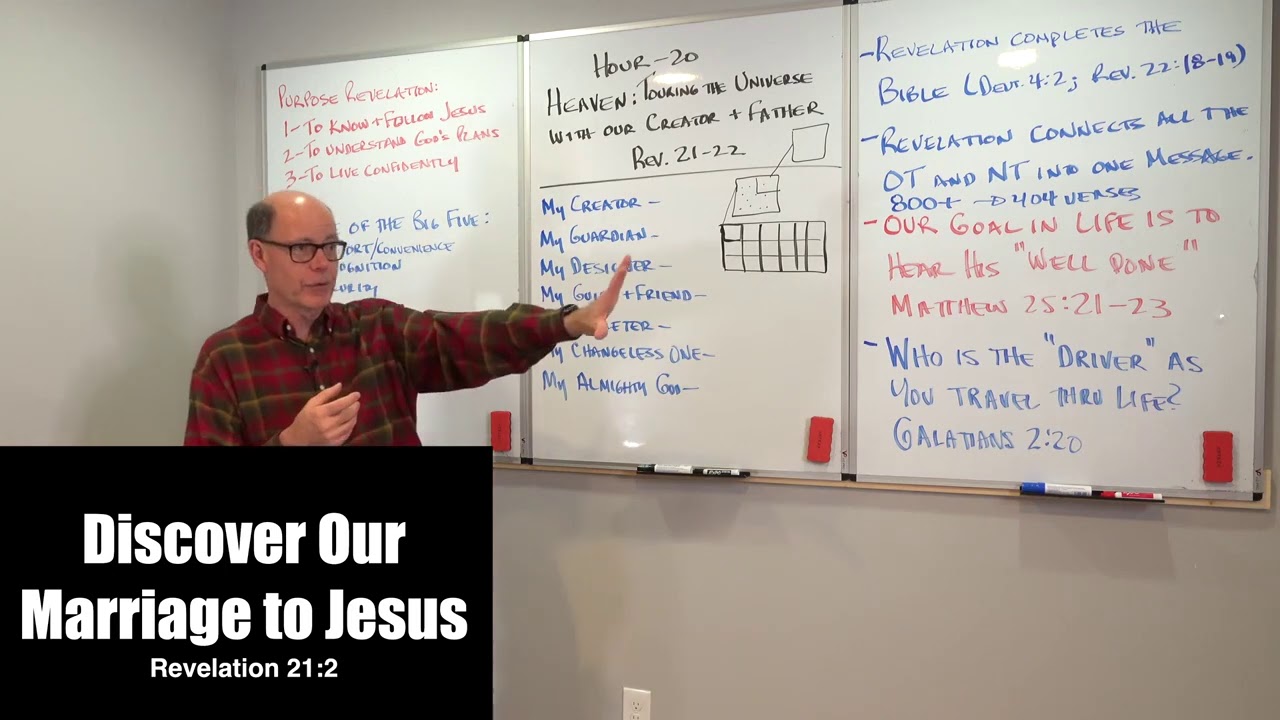 PURPOSE REVELATION:
1-TO KNOW + FOLLOW JESUS
2-TO UNDERSTAND GOD'S PLANS
3-TO LIVE CONFIDENTLY
OF THE BIG FIVE:
/CONVENIENCE
HOUR-20
HEAVEN: TOURING THE UNIVERSE
WITH OUR CREATOR + FATHER
REV. 21-22
MY CREATOR-
MY GUARDIAN-
MY DESIGNER-
MY + FRIEND-
MY CHANGELESS ONE-
MY ALMIGHTY GOD-
-REVELATION COMPLETES THE
BIBLE (DEUT. 4:2; REV. 22:18-19)
-REVELATION CONNECTS ALL THE
OT AND NT INTO ONE MESSAGE.
800+ → 404 VERSES
-OUR GOAL IN LIFE IS TO
HEAR HIS "WELL DONE"
MATTHEW 25:21-23
-WHO IS THE "DRIVER" AS
YOU TRAVEL THRU LIFE?
GALATIANS 2:20
Discover Our
Marriage to Jesus
Revelation 21:2